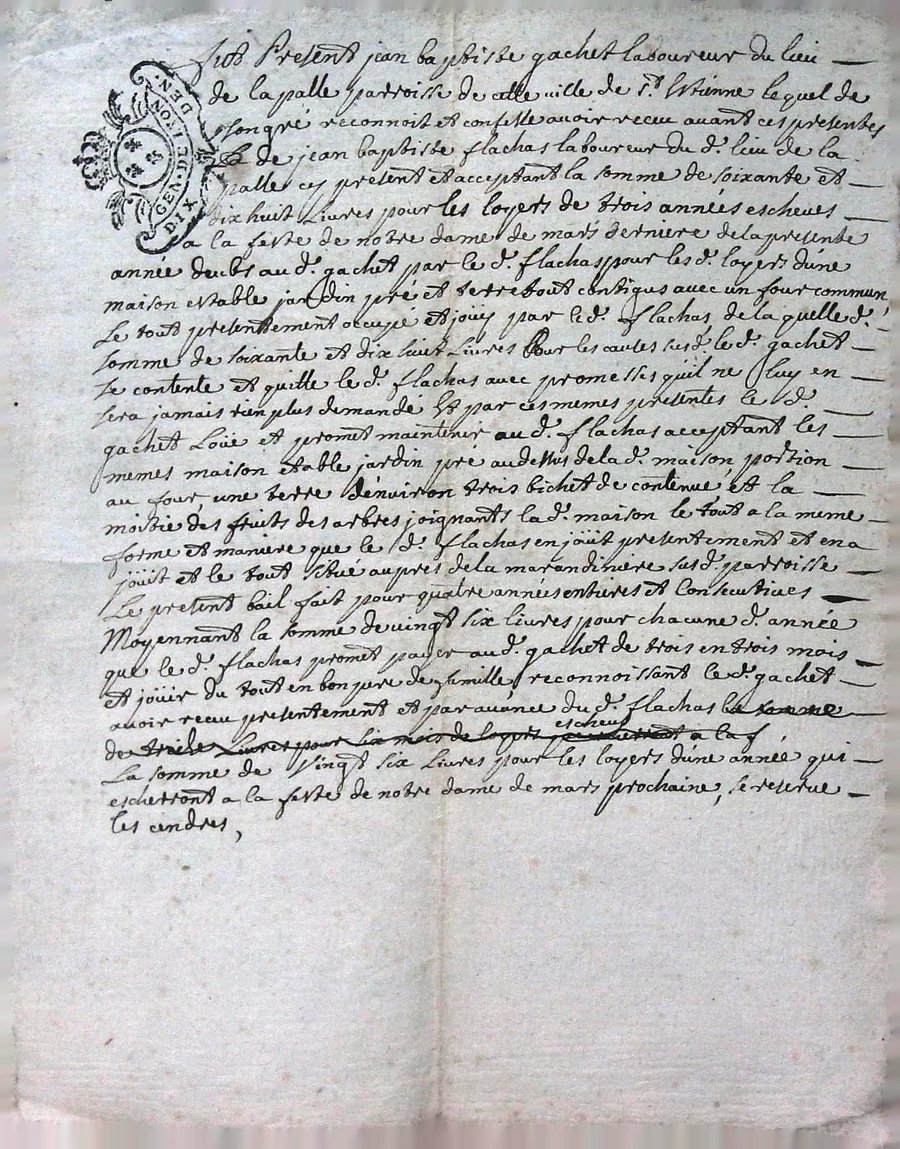 GEN. DE. LYON
DIX DEN.
fut Present jean baptiste gachet laboureur du lieu
de la palle parroisse de cette ville de st. Estienne lequel de
son gré reconnoit et confesse avoir receu avant ces presentes
de jean baptiste flachas laboureur du d. lieu de la
palle cy present et acceptant la somme de soixante et
dix huit Livres pour les loyers de trois années escheues
a la feste de notre dame de mars derniere de la presente
année deubs au d. gachet par le d. flachas pour les d. loyers d'une
maison estable jardin pré et terre tout contigus avec un four commun
Le tout presentement occupé et jouy par le d. flachas de la quelle d.
somme de soixante et dix huit Livres Pour les causes susd. le d. gachet
se contente et quitte le d. flachas avec promesses qu'il ne luy en
sera jamais rien plus demandé Et par ces memes presentes le d.
gachet Loüe et promet maintenir au d. flachas acceptant les
memes maison etable jardin pre au dessus de la d. maison portion
au four, une terre d'environ trois bichet de contenue, et la
moitié des fruits des arbres joignants la d. maison le tout a la meme
forme et maniere que le d. flachas en joüit presentement et en a
joüit et le tout situé au pres de la marandiniere susd. parroisse
Le present bail fait pour quatre années entieres et Consecutives
Moyennant la somme de vingt six livres pour chacune d. année
que le d. flachas promet payer au d. gachet de trois en trois mois
et joüir du tout en bon pere de famille, reconnoissant le d. gachet
avoir receu presentement et par avance du d. flachas la somme
de treise Livres pour six mois de loyers escheus a la f
La somme de Vingt six Livres pour les loyers d'une année qui
escherront a la feste de notre dame de mars prochaine, se reserve
les cendres,